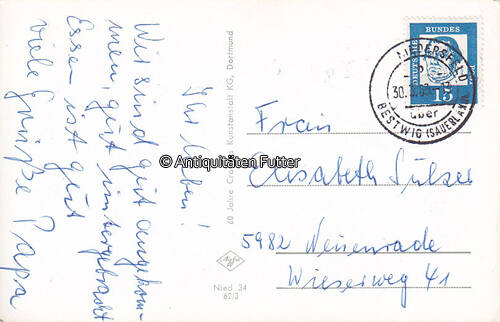 Ihr Lieben!
Wir sind gut angekom-
men, gut untergebracht
Essen ist gut
viele Grüße Papa
60 Jahre Cramers Kunstanstalt KG, Dortmund
Agfa
Nied. 34
62/3
DEUTSCHE BUNDESPOST
15
NIEDERSFELD
30.
über
BESTWIG (SAUERLAND)
Frau
Elisabeth Sülzer
5982 Neuenrade
Wieserweg 41
© Antiquitäten Futter